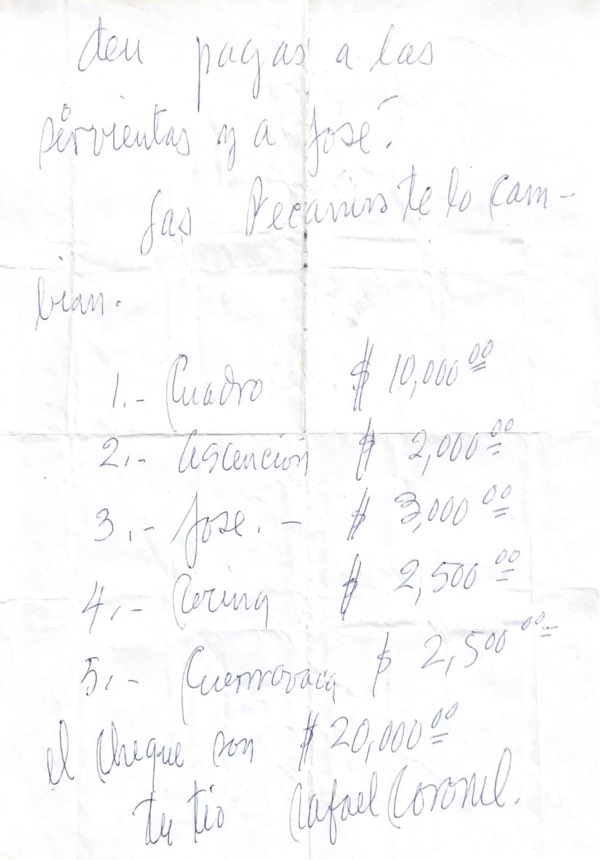 den pagas a las
sirvientas y a José.
Las Pecanins te lo cam-
bian.
1.- Cuadro $ 10,000.00
2.- Ascención $ 2,000.00
3.- José.- $ 3,000.00
4.- Corina $ 2,500.00
5.- Cuernavaca $ 2,500.00
el cheque son $ 20,000.00
tu tío Rafael Coronel.